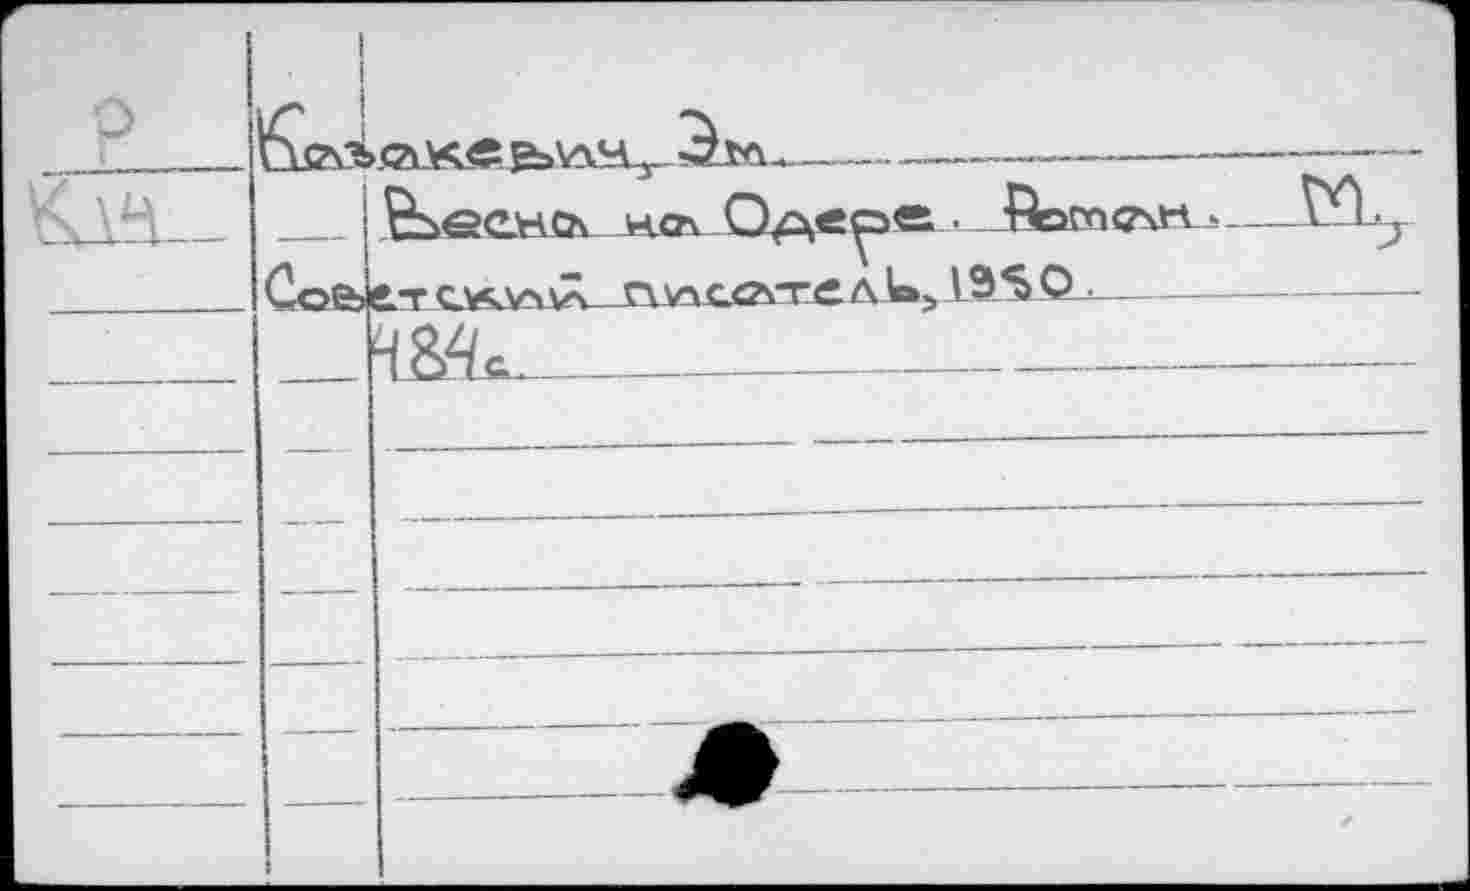 Р
К14
Казакевич, Эм.
Весна на Одере. Роман. М.,
Советский писатель, 1950.
484с.